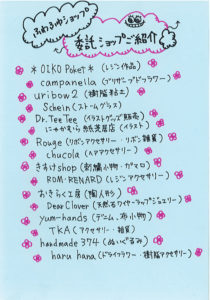 ふわふわショップ
委託ショップご紹介
* OIKO Poket * (レジン作品)
campanella (プリザーブドフラワー)
uribow2 (樹脂粘土)
Schein (ストームグラス)
Dr.Tee Tee (イラストグッズ販売)
にゃかむら猫美芸店 (イラスト)
Rouge (リボンアクセサリー・リボン雑貨)
chucola (ヘアアクセサリー)
きすけshop (刺繍小物・ガマ口)
ROM-RENARD (レジンアクセサリー)
おきらく工房 (陶人形)
Dear Clover (天然石ワイヤーラップジュエリー)
yum-hands (デニム・布小物)
TKA (アクセサリー・雑貨)
handmade 374 (ぬいぐるみ)
haru hana (ドライフラワー・樹脂アクセサリー)